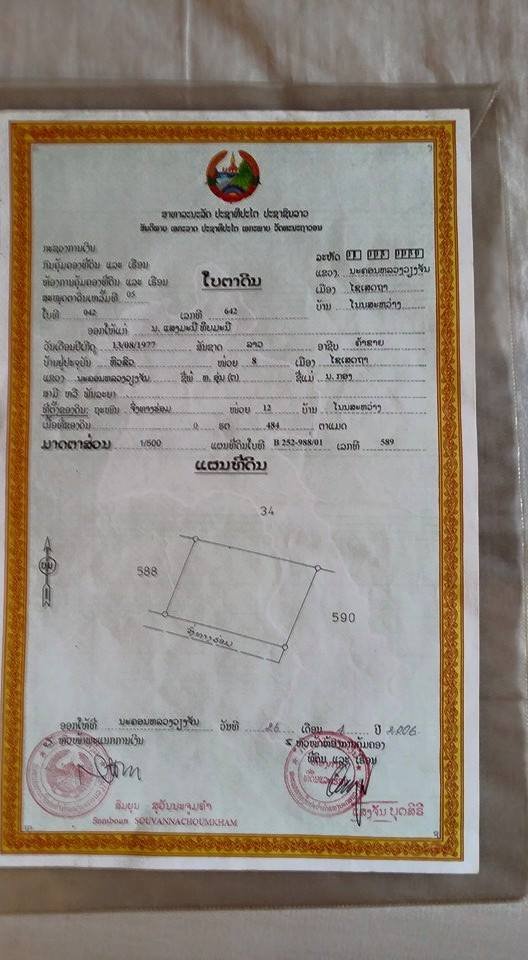 ສາທາລະນະລັດ ປະຊາທິປະໄຕ ປະຊາຊົນລາວ
ສັນຕິພາບ ເອກະລາດ ປະຊາທິປະໄຕ ເອກະພາບ ວັດທະນະຖາວອນ
ກະຊວງການເງິນ
ກົມຄຸ້ມຄອງທີ່ດິນ ແລະ ເຮືອນ
ຫ້ອງການຄຸ້ມຄອງທີ່ດິນ ແລະ ເຮືອນ
ສະໝຸດຕາດິນເຫລັ້ມທີ 05
ໃບຕາດິນ
ລະຫັດ 01
ແຂວງ ນະຄອນຫລວງວຽງຈັນ
ເມືອງ ໄຊເສດຖາ
ບ້ານ ໂນນສະຫວ່າງ
ໃບທີ 042 ເລກທີ 642
ອອກໃຫ້ແກ່ ນ. ແສງມະນີ ທິບມະນີ
ວັນເດືອນປີເກີດ 13/08/1977 ສັນຊາດ ລາວ ອາຊີບ ຄ້າຂາຍ
ບ້ານຢູ່ປະຈຸບັນ ຫົວຂົວ ໜ່ວຍ 8 ເມືອງ ໄຊເສດຖາ
ແຂວງ ນະຄອນຫລວງວຽງຈັນ ຊື່ພໍ່ ທ. ຊື່ແມ່ ນ. ກອງ
ສາມີ ຫລື ພັນລະຍາ
ທີ່ຕັ້ງຂອງດິນ: ຖະໜົນ ຈຸທາງຮ່ອມ ໜ່ວຍ 12 ບ້ານ ໂນນສະຫວ່າງ
ເນື້ອທີ່ຂອງດິນ 0 ຮຕ 484 ຕາແມດ
ມາດຕາສ່ວນ 1/500 ແຜນທີ່ດິນໃບທີ B 252-988/01 ເລກທີ 589
ແຜນທີ່ດິນ
34
588
590
ທາງຮ່ອມ
ອອກໃຫ້ທີ່ ນະຄອນຫລວງວຽງຈັນ ວັນທີ 26 ເດືອນ 1 ປີ 2006
ຫົວໜ້າພະແນກການເງິນ
ຫົວໜ້າຫ້ອງການຄຸ້ມຄອງ
ທີ່ດິນ ແລະ ເຮືອນ
ສົມບູນ ສຸວັນນະຈຸມຄໍາ
Somboun SOUVANNACHOUMKHAM
ແສງຈັນ ບຸດສີຣິ